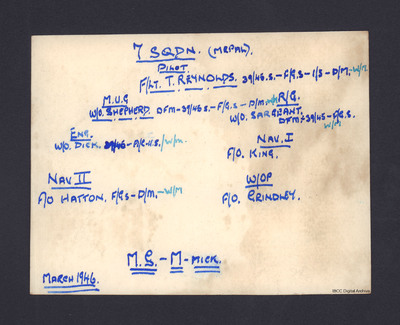 7 SQDN. (MEPAL).
PILOT.
F/LT. T. REYNOLDS. 39/45.S. - F/G.S - I/S - D/M. - W/M.
M.U.G
W/O. SHEPHERD. DFM - 39/45.S. - F/G.S - D/M - W/M
R/G.
W/O. SARGEANT.
DFM - 39/45 - F/G.S.
W/M
ENG.
W/O. DICK. 39/45 - W/M.
NAV. I
F/O. KING.
NAV II
F/O HATTON. F/G S - D/M. - W/M
W/OP
F/O. GRINDLEY.
M.G. - M - MICK.
MARCH 1946.
IBCC Digital Archive